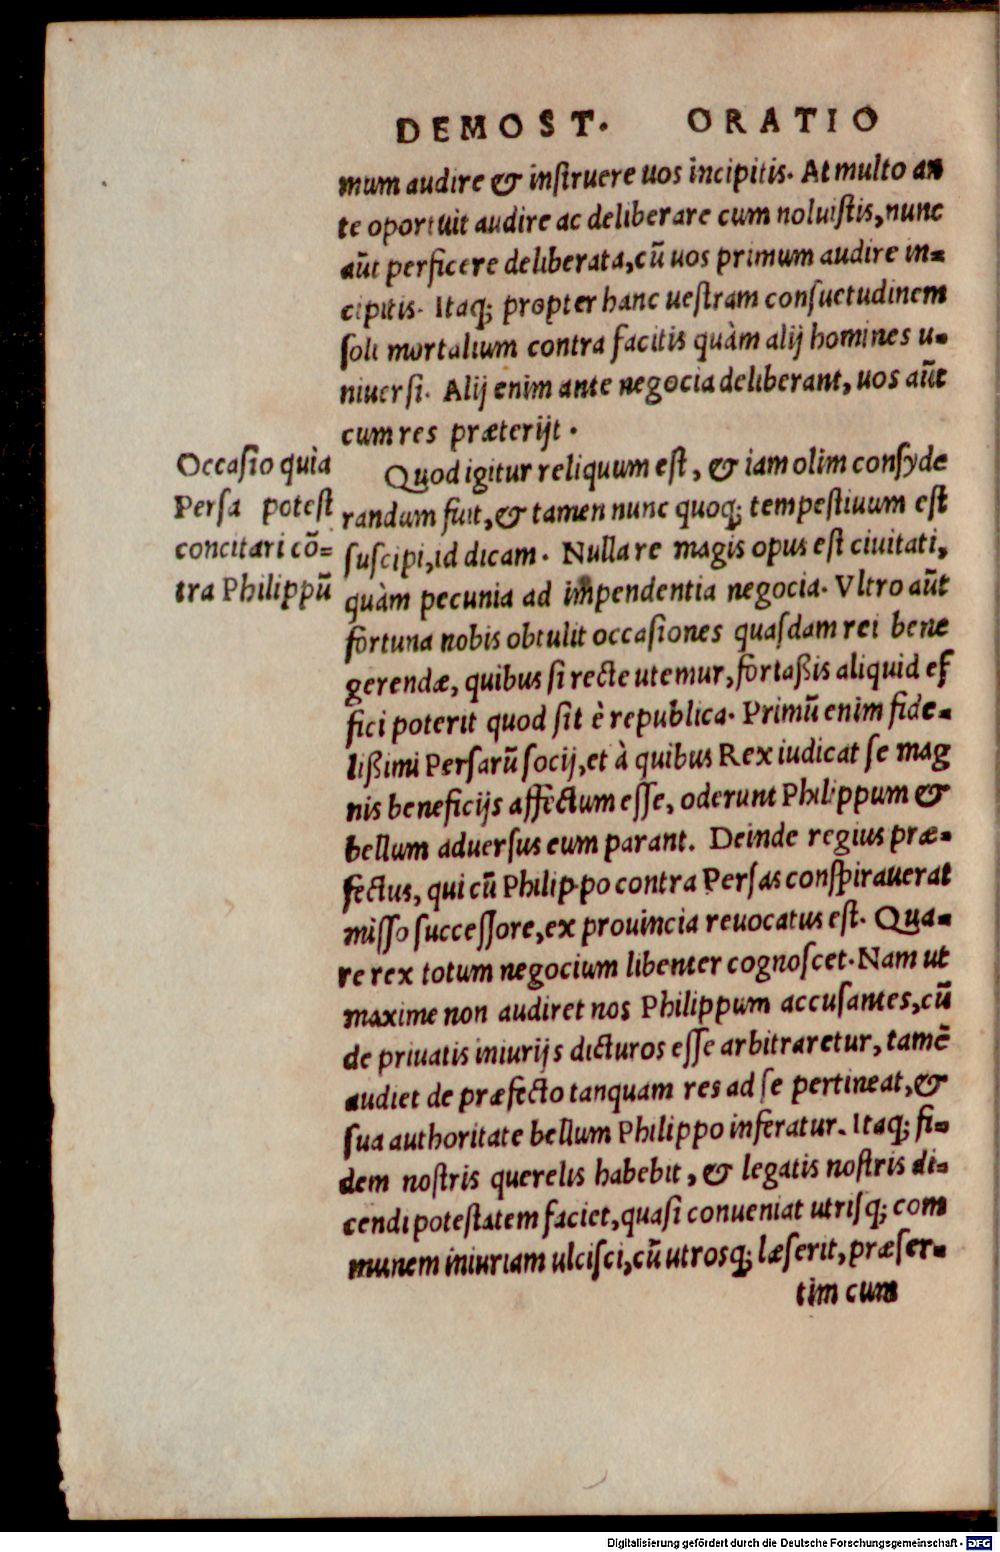 DEMOST. ORATIO
mum audire & inſtruere uos incipitis. At multo an
te oportuit audire ac deliberare cum noluiſtis, nunc
aūt perficere deliberata, cū uos primum audire in-
cipitis. Itaq; propter hanc ueſtram conſuetudinem
ſoli mortalium contra facitis quàm alij homines u-
niuerſi. Alij enim ante negocia deliberant, uos aūt
cum res præterijt.
Occaſio quia
Perſa poteſt
concitari cō=
tra Philippū
Quod igitur reliquum eſt, & iam olim conſyde
randum fuit, & tamen nunc quoq; tempeſtiuum eſt
ſuſcipi, id dicam. Nulla re magis opus eſt ciuitati,
quàm pecunia ad impendentia negocia. Vltro aūt
fortuna nobis obtulit occaſiones quaſdam rei bene
gerendæ, quibus ſi recte utemur, fortaßis aliquid ef
fici poterit quod ſit è republica. Primū enim fide-
lißimi Perſarū ſocij, et à quibus Rex iudicat ſe mag
nis beneficijs affectum eſſe, oderunt Philippum &
bellum aduerſus eum parant. Deinde regius præ-
fectus, qui cū Philippo contra Perſas conſpirauerat
miſſo ſucceſſore, ex prouincia reuocatus eſt. Qua-
re rex totum negocium libenter cognoſcet. Nam ut
maxime non audiret nos Philippum accuſantes, cū
de priuatis iniurijs dicturos eſſe arbitraretur, tamē
audiet de præfecto tanquam res ad ſe pertineat, &
ſua authoritate bellum Philippo inferatur. Itaq; fi-
dem noſtris querelis habebit, & legatis noſtris di-
cendi poteſtatem faciet, quaſi conueniat utriſq; com
munem iniuriam ulciſci, cū utrosq; læſerit, præſer-
tim cum
Digitalisierung gefördert durch die Deutsche Forschungsgemeinschaft - DFG